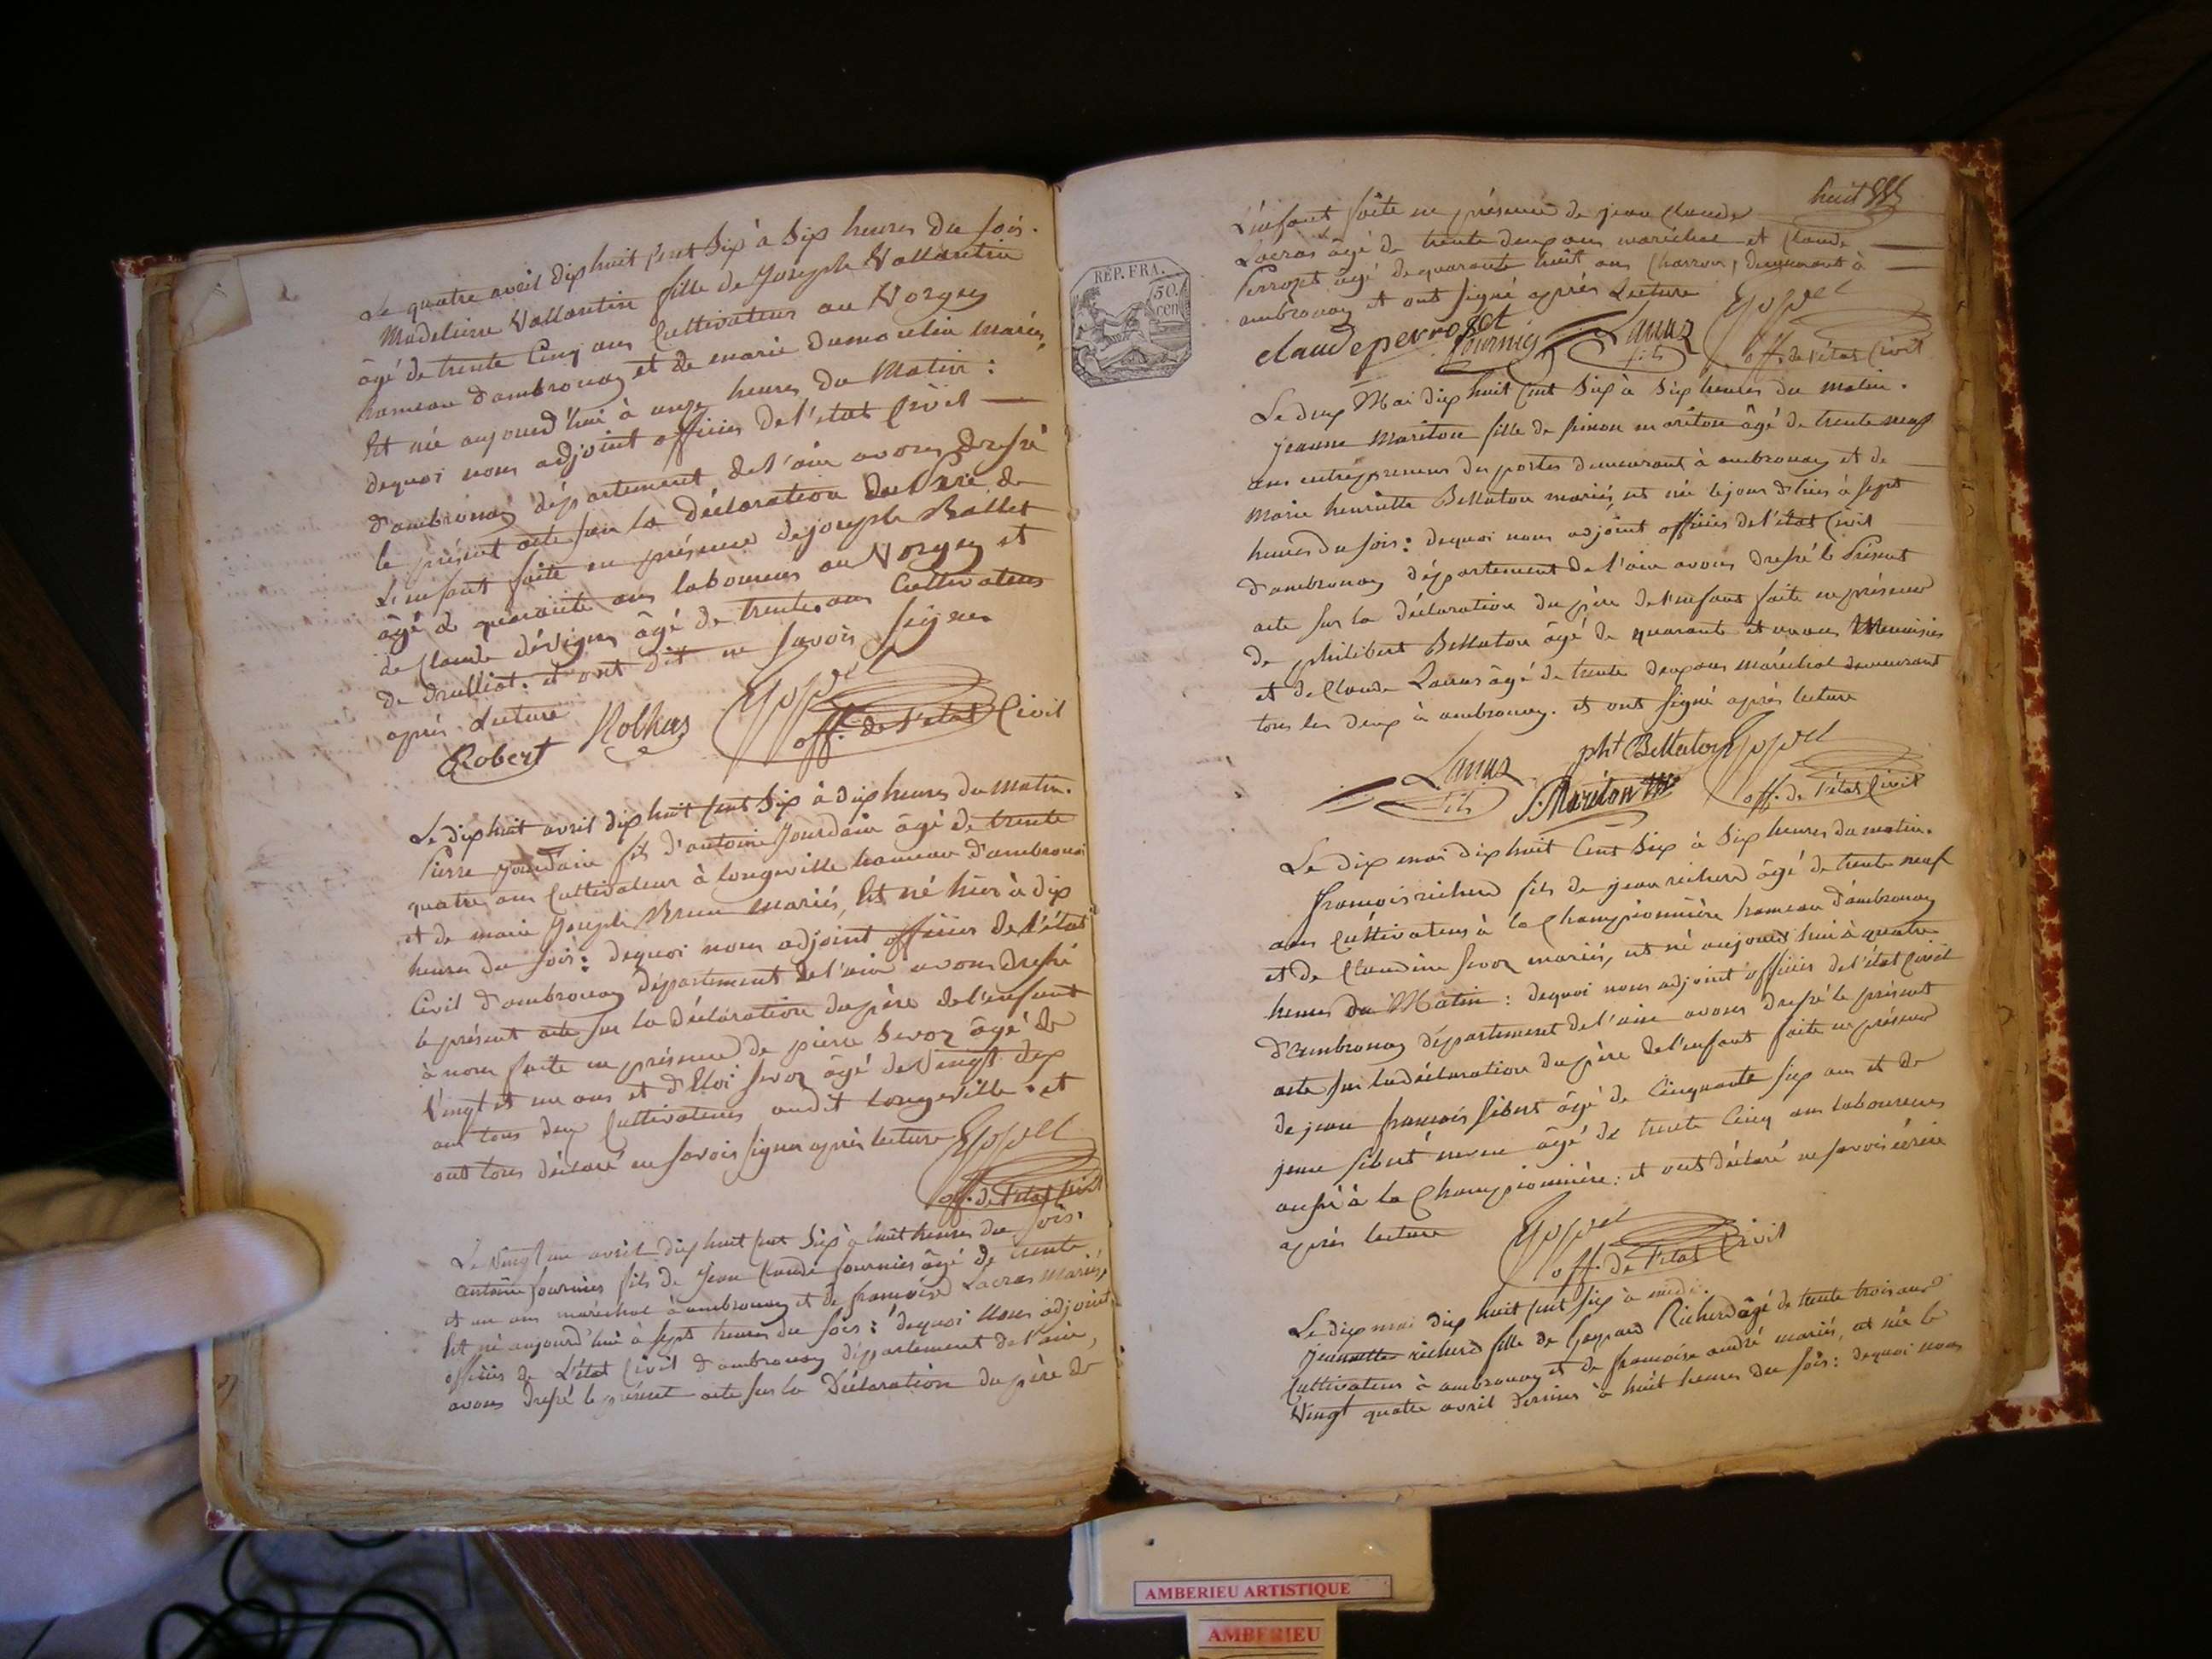 Le quatre avril dix huit cent Six à Six heures du soir.
Madeleine Vallantin fille de Joseph Vallantin
âgé de trente Cinq ans Cultivateur au Vorgey
hameau d'ambronay et de marie dumoulin mariés,
Et née aujourd'hui à onze heures du Matin :
dequoi nous adjoint officier de l'état Civil
d'ambronay département de l'ain avons dressé
le présent acte sur la déclaration du Père de
L'enfant faite en présence de joseph Ballet
âgé de quarante ans laboureur au Vorgey et
de Claude dévigne âgé de trente ans Cultivateur
de Drulliat. et ont dit ne savoir signer
après lecture
Robert Rolhas
off. de l'état Civil
Le dix huit avril dix huit Cent Six à dix heures du matin.
Pierre Jourdain fils d'antoine Jourdain âgé de trente
quatre ans Cultivateur à longeville hameau d'ambronai
et de marie Joseph Brun mariés, Est né hier à dix
heures du soir : dequoi nous adjoint officier de l'état
Civil d'ambronay département de l'ain avons dressé
le présent acte sur la déclaration du père de l'enfant
à nous faite en présence de pierre Sevoz âgé de
Vingt et un ans et d'Eloi Sevoz âgé de Vingt dix
ans tous deux Cultivateurs audit longeville. et
ont tous déclaré ne savoir signer après lecture
off. de l'état Civil
Le Vingt un avril dix huit Cent Six à huit heures du soir.
antoine fournier fils de Jean Claude fournier âgé de trente
et un ans maréchal à ambronay et de françoise Lacras Mariés,
Est né aujourd'hui à sept heures du soir : dequoi Nous adjoint
officier de L'état Civil d'ambronay département de l'ain,
avons dressé le présent acte sur la Déclaration du père de
huit
L'enfant faite en présence de jean Claude
Lacras âgé de trente deux ans maréchal et Claude
Perrozet âgé de quarante huit ans Charron, demeurant à
ambronay et ont signé après Lecture
RÉP. FRA.
50.
cen
claude perrozet fournier Lacras
fils
off. de l'état Civil
Le deux Mai dix huit Cent Six à Six heures du matin.
Jeanne Mariton fille de simon mariton âgé de trente neuf
ans entrepreneur des postes demeurant à ambronay et de
Marie henriette Bellaton mariés, est née le jour d'hier à sept
heures du soir : dequoi nous adjoint officier de l'état Civil
d'ambronay département de l'ain avons dressé le Présent
acte sur la déclaration du père de l'enfant faite en présence
de philibert Bellaton âgé de quarante et un ans Menuisier
et de Claude Lacras âgé de trente deux ans maréchal demeurant
tous les deux à ambronay. et ont signé après lecture
Lacras pht Bellaton
fils S. Mariton
off. de l'état Civil
Le dix mai dix huit Cent Six à Six heures du matin.
francois richerd fils de jean richerd âgé de trente neuf
ans Cultivateur à la Championnière hameau d'ambronay
et de Claudine Sevoz mariés, est né aujourd'hui à quatre
heures du Matin : dequoi nous adjoint officier de l'état Civil
d'ambronay département de l'ain avons dressé le présent
acte sur la déclaration du père de l'enfant faite en présence
de jean francois sibert âgé de Cinquante six ans et de
jean sibert neveu âgé de trente Cinq ans laboureurs
aussi à la Championnière : et ont déclaré ne savoir écrire
après lecture
off. de l'état Civil
Le dix mai dix huit Cent six à midi.
Jeannette richerd fille de Gaspard Richerd âgé de trente trois ans
Cultivateur à ambronay et de francoise andré mariés, est née le
Vingt quatre avril dernier à huit heures du soir : dequoi nous
AMBERIEU ARTISTIQUE
AMBERIEU